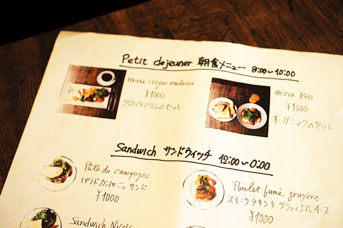 Petit dejeuner 朝食メニュー 8:00~10:00
menu croque madame
¥1000
クロックマダムのセット
menu Bio
¥1000
オーガニックのセット
Sandwich サンドウィッチ 12:00~0:00
Pâté de campagne
パテドカンパーニュ サンド
¥1000
Poulet fumé gruyère
スモークチキンとグリュイエルチーズ
¥1000
Sandwich